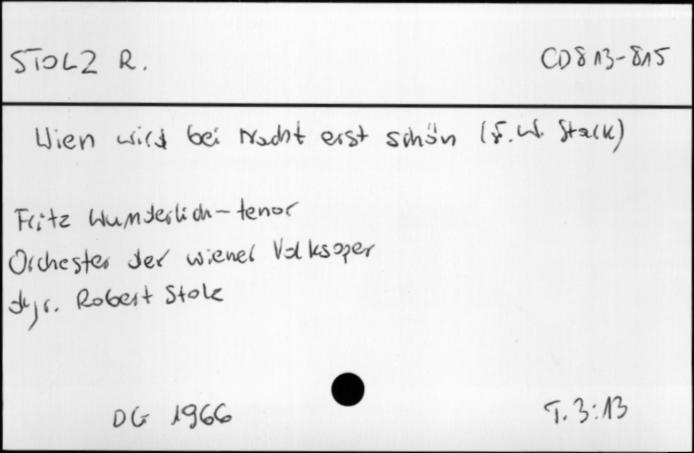 STOLZ R.
CD813-815
Wien wird bei Nacht erst schön (F.W. Stark)
Fritz Wunderlich-tenor
Orchester der wiener Volksoper
dyr. Robert Stolz
DG 1966
T. 3:13